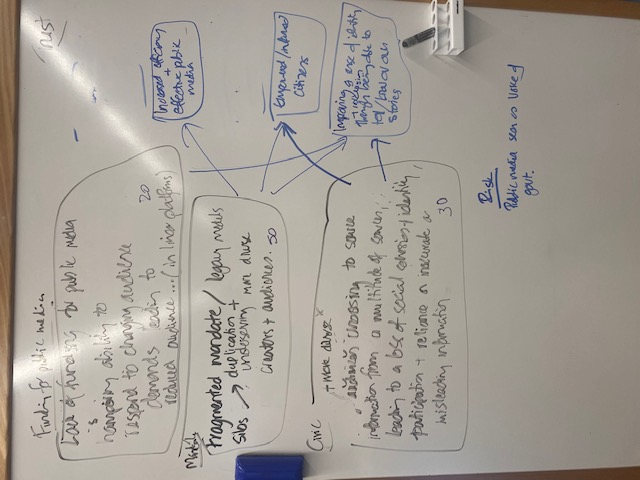 Trust
Funding for public media
Lack of funding for public media
is
hampering ability to
respond to changing audience
demands leading to 20
reduced audience ... (in linear platforms)
Mandate
Fragmented mandate / legacy models
silos → duplication +
underserving more diverse
creators + audiences. 50
Civic
+ more diverse
audiences choosing to source
information from a multitude of sources,
leading to a loss of social cohesion + identity,
participation + reliance on inaccurate +
misleading information 30
Increased efficiency
+
effective public
media
Empowered / informed
citizens
Improving sense of identity
+ inclusion
through being able to
tell / hear local / our
stories
Risk
Public media seen as voice of
govt.